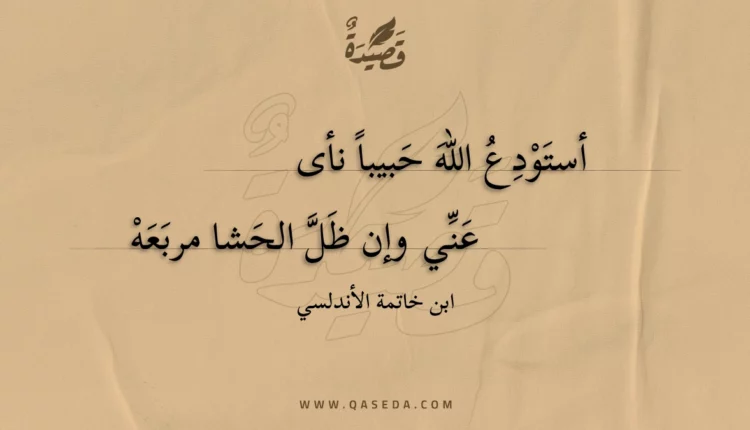 قَصِيدَةٌ
أستَوْدِعُ اللهَ حَبيباً نأى
عَنِّي وإن ظَلَّ الحَشا مربَعَهْ
ابن خاتمة الأندلسي
WWW.QASEDA.COM